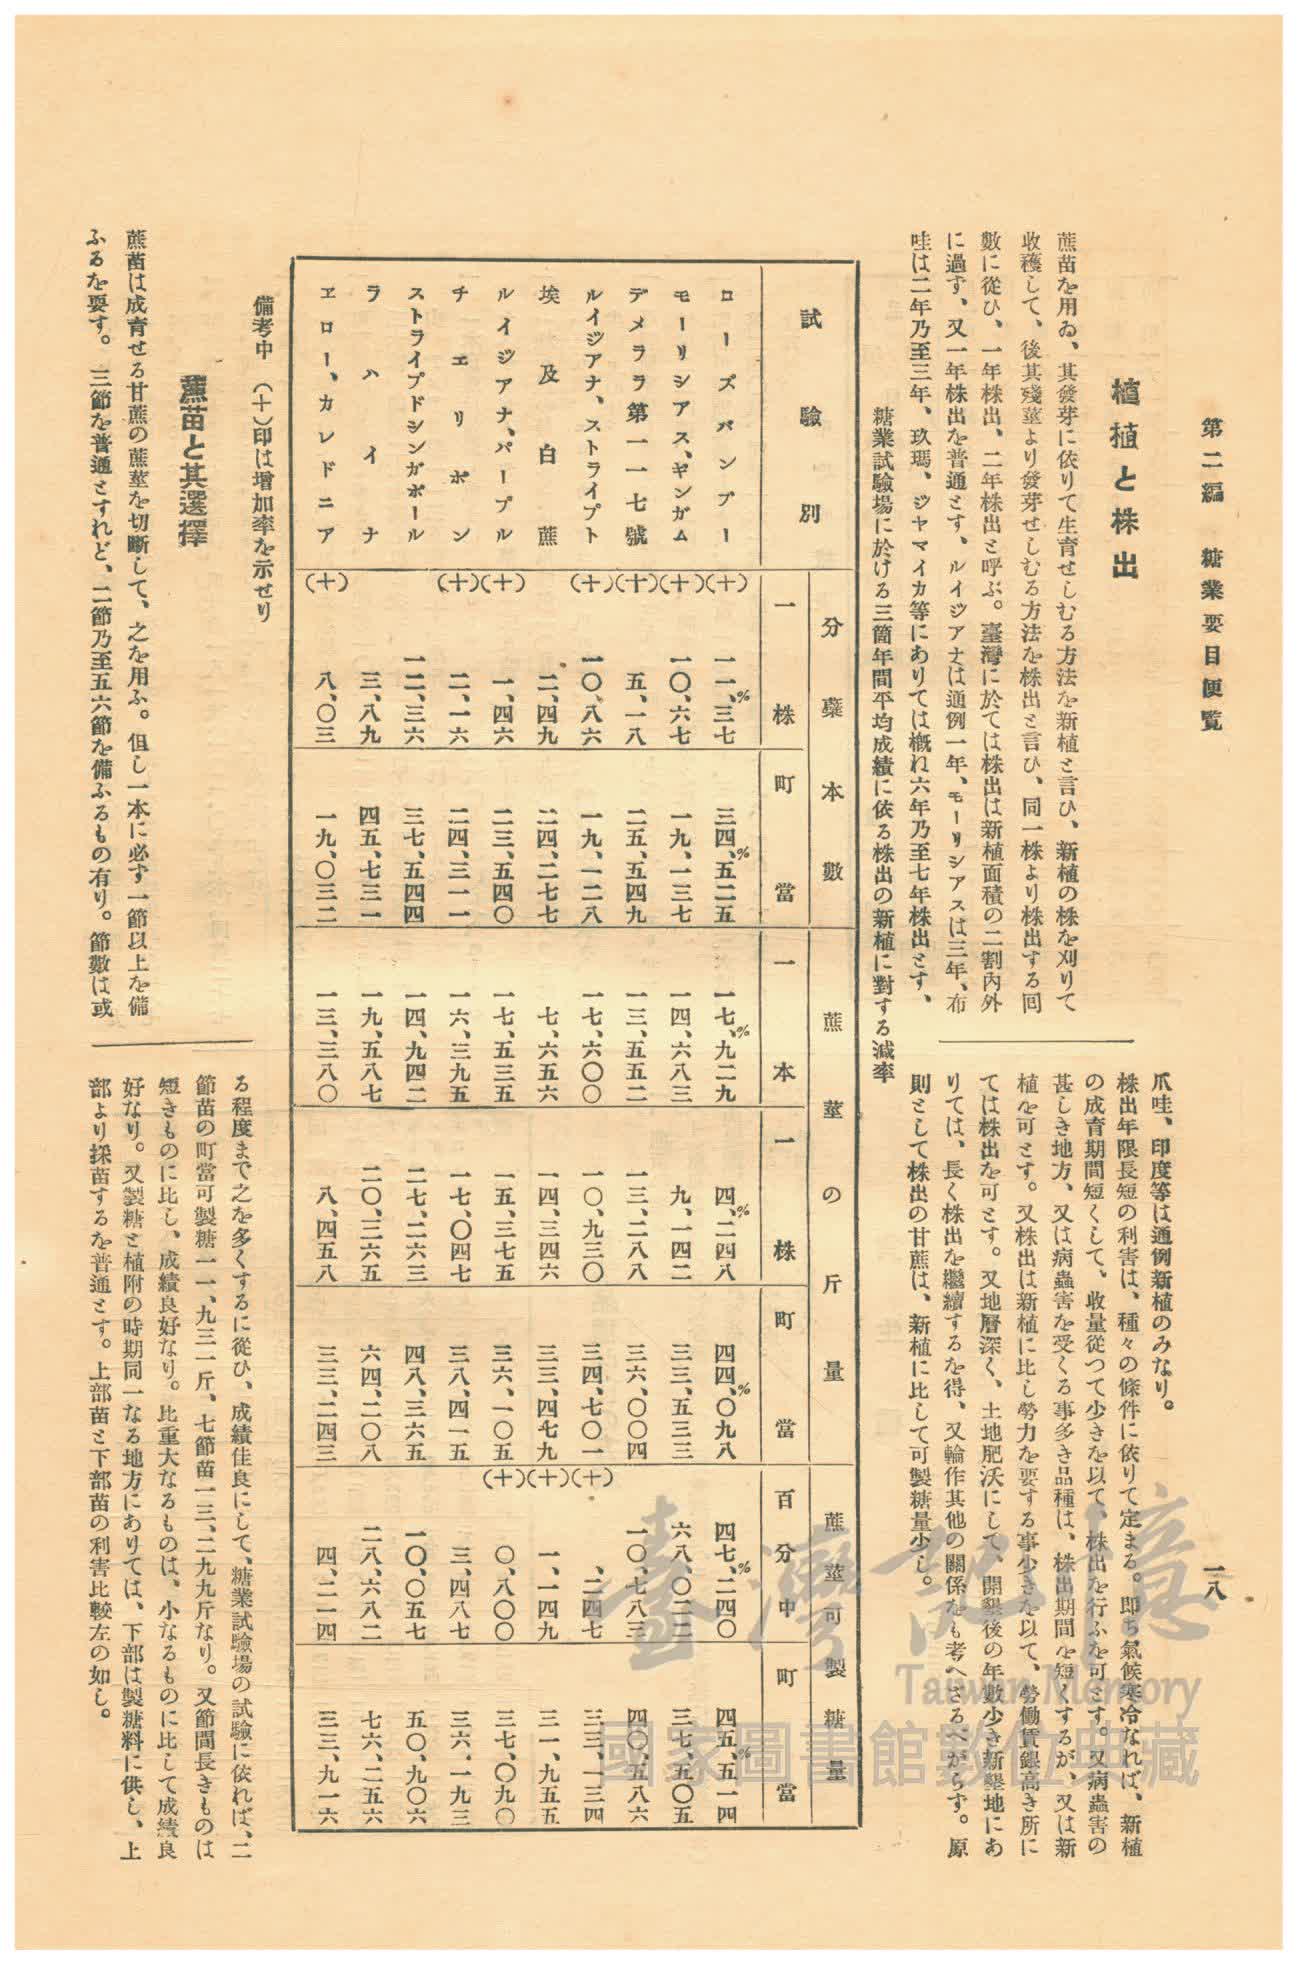 第二編　糖業要目便覧
一八
植植と株出
蔗苗を用ゐ、其發芽に依りて生育せしむる方法を新植と言ひ、新植の株を刈りて
收穫して、後其殘莖より發芽せしむる方法を株出と言ひ、同一株より株出する回
數に從ひ、一年株出、二年株出と呼ぶ。臺灣に於ては株出は新植面積の二割內外
に過ず、又一年株出を普通とす、ルイジアナは通例一年、モーリシアスは三年、布
哇は二年乃至三年、玖瑪、ジヤマイカ等にありては槪ね六年乃至七年株出とす、
爪哇、印度等は通例新植のみなり。
株出年限長短の利害は、種々の條件に依りて定まる。即ち氣候寒冷なれば、新植
の成育期間短くして、收量從つて少きを以て、株出を行ふを可とす。又病蟲害の
甚しき地方、又は病蟲害を受くる事多き品種は、株出期間を短くするが、又は新
植を可とす。又株出は新植に比し勞力を要する事少きを以て、勞働賃銀高き所に
ては株出を可とす。又地層深く、土地肥沃にして、開墾後の年數少き新墾地にあ
りては、長く株出を繼續するを得、又輪作其他の關係をも考へざるべからず。原
則として株出の甘蔗は、新植に比して可製糖量少し。
糖業試驗場に於ける三箇年間平均成績に依る株出の新植に對する減率
試驗別
分蘗本數
蔗莖の斤量
蔗莖可製糖量
一株　町當　一本　一株　町當　百分中　町當
ローズバンブー　(十)一一、三七%　三四、五二五%　一七、九二九%　四、二四八%　四四、〇九八%　四七、二四〇%　四五、五一四%
モーリシアス、ギンガム　(十)一〇、六七　一九、一三七　一四、六八三　九、一四二　三三、五三三　六八、〇二二　三七、五〇五
デメララ第一一七號　(十)五、一八　二五、五四九　一三、五五二　一三、二八八　三六、〇〇四　一〇、七八三　四〇、五八六
ルイジアナ、ストライプト　(十)一〇、八六　一九、一二八　一七、六〇〇　一〇、九三〇　三四、七〇一　(十)、二四七　三三、一三四
埃及白蔗　二、四九　二四、二七七　七、六五六　一四、三四六　三三、四七九　(十)一、一四九　三一、九五五
ルイジアナ、パープル　(十)一、四六　二三、五四〇　一七、五三五　一五、三七五　三六、一〇五　(十)〇、八〇〇　三七、〇九〇
チエリボン　(十)二、一六　二四、三一一　一六、三九五　一七、〇四七　三八、四一五　三、四八七　三六、一九三
ストライプドシンガポール　一二、三六　三七、五四四　一四、九四二　二七、二六三　四八、三六五　一〇、〇五七　五〇、九〇六
ラハイナ　三、八九　四五、七三一　一九、五八七　二〇、三六五　六四、二〇八　二八、六八二　七六、二五六
ヱロー、カレドニア　(十)八、〇三　一九、〇三二　一三、三八〇　八、四五八　三三、二四三　四、二一四　三三、九一六
備考中　(十)印は增加率を示せり
蔗苗と其選擇
蔗苗は成育せる甘蔗の蔗莖を切斷して、之を用ふ。但し一本に必ず一節以上を備
ふるを要す。三節を普通とすれど、二節乃至五六節を備ふるもの有り。節數は或
る程度まで之を多くするに從ひ、成績佳良にして、糖業試驗場の試驗に依れば、二
節苗の町當可製糖一一、九三一斤、七節苗一三、二九九斤なり。又節間長きものは
短きものに比し、成績良好なり。比重大なるものは、小なるものに比して成績良
好なり。又製糖と植附の時期同一なる地方にありては、下部は製糖料に供し、上
部より採苗するを普通とす。上部苗と下部苗の利害比較左の如し。
臺灣記憶
Taiwan Memory
國家圖書館數位典藏